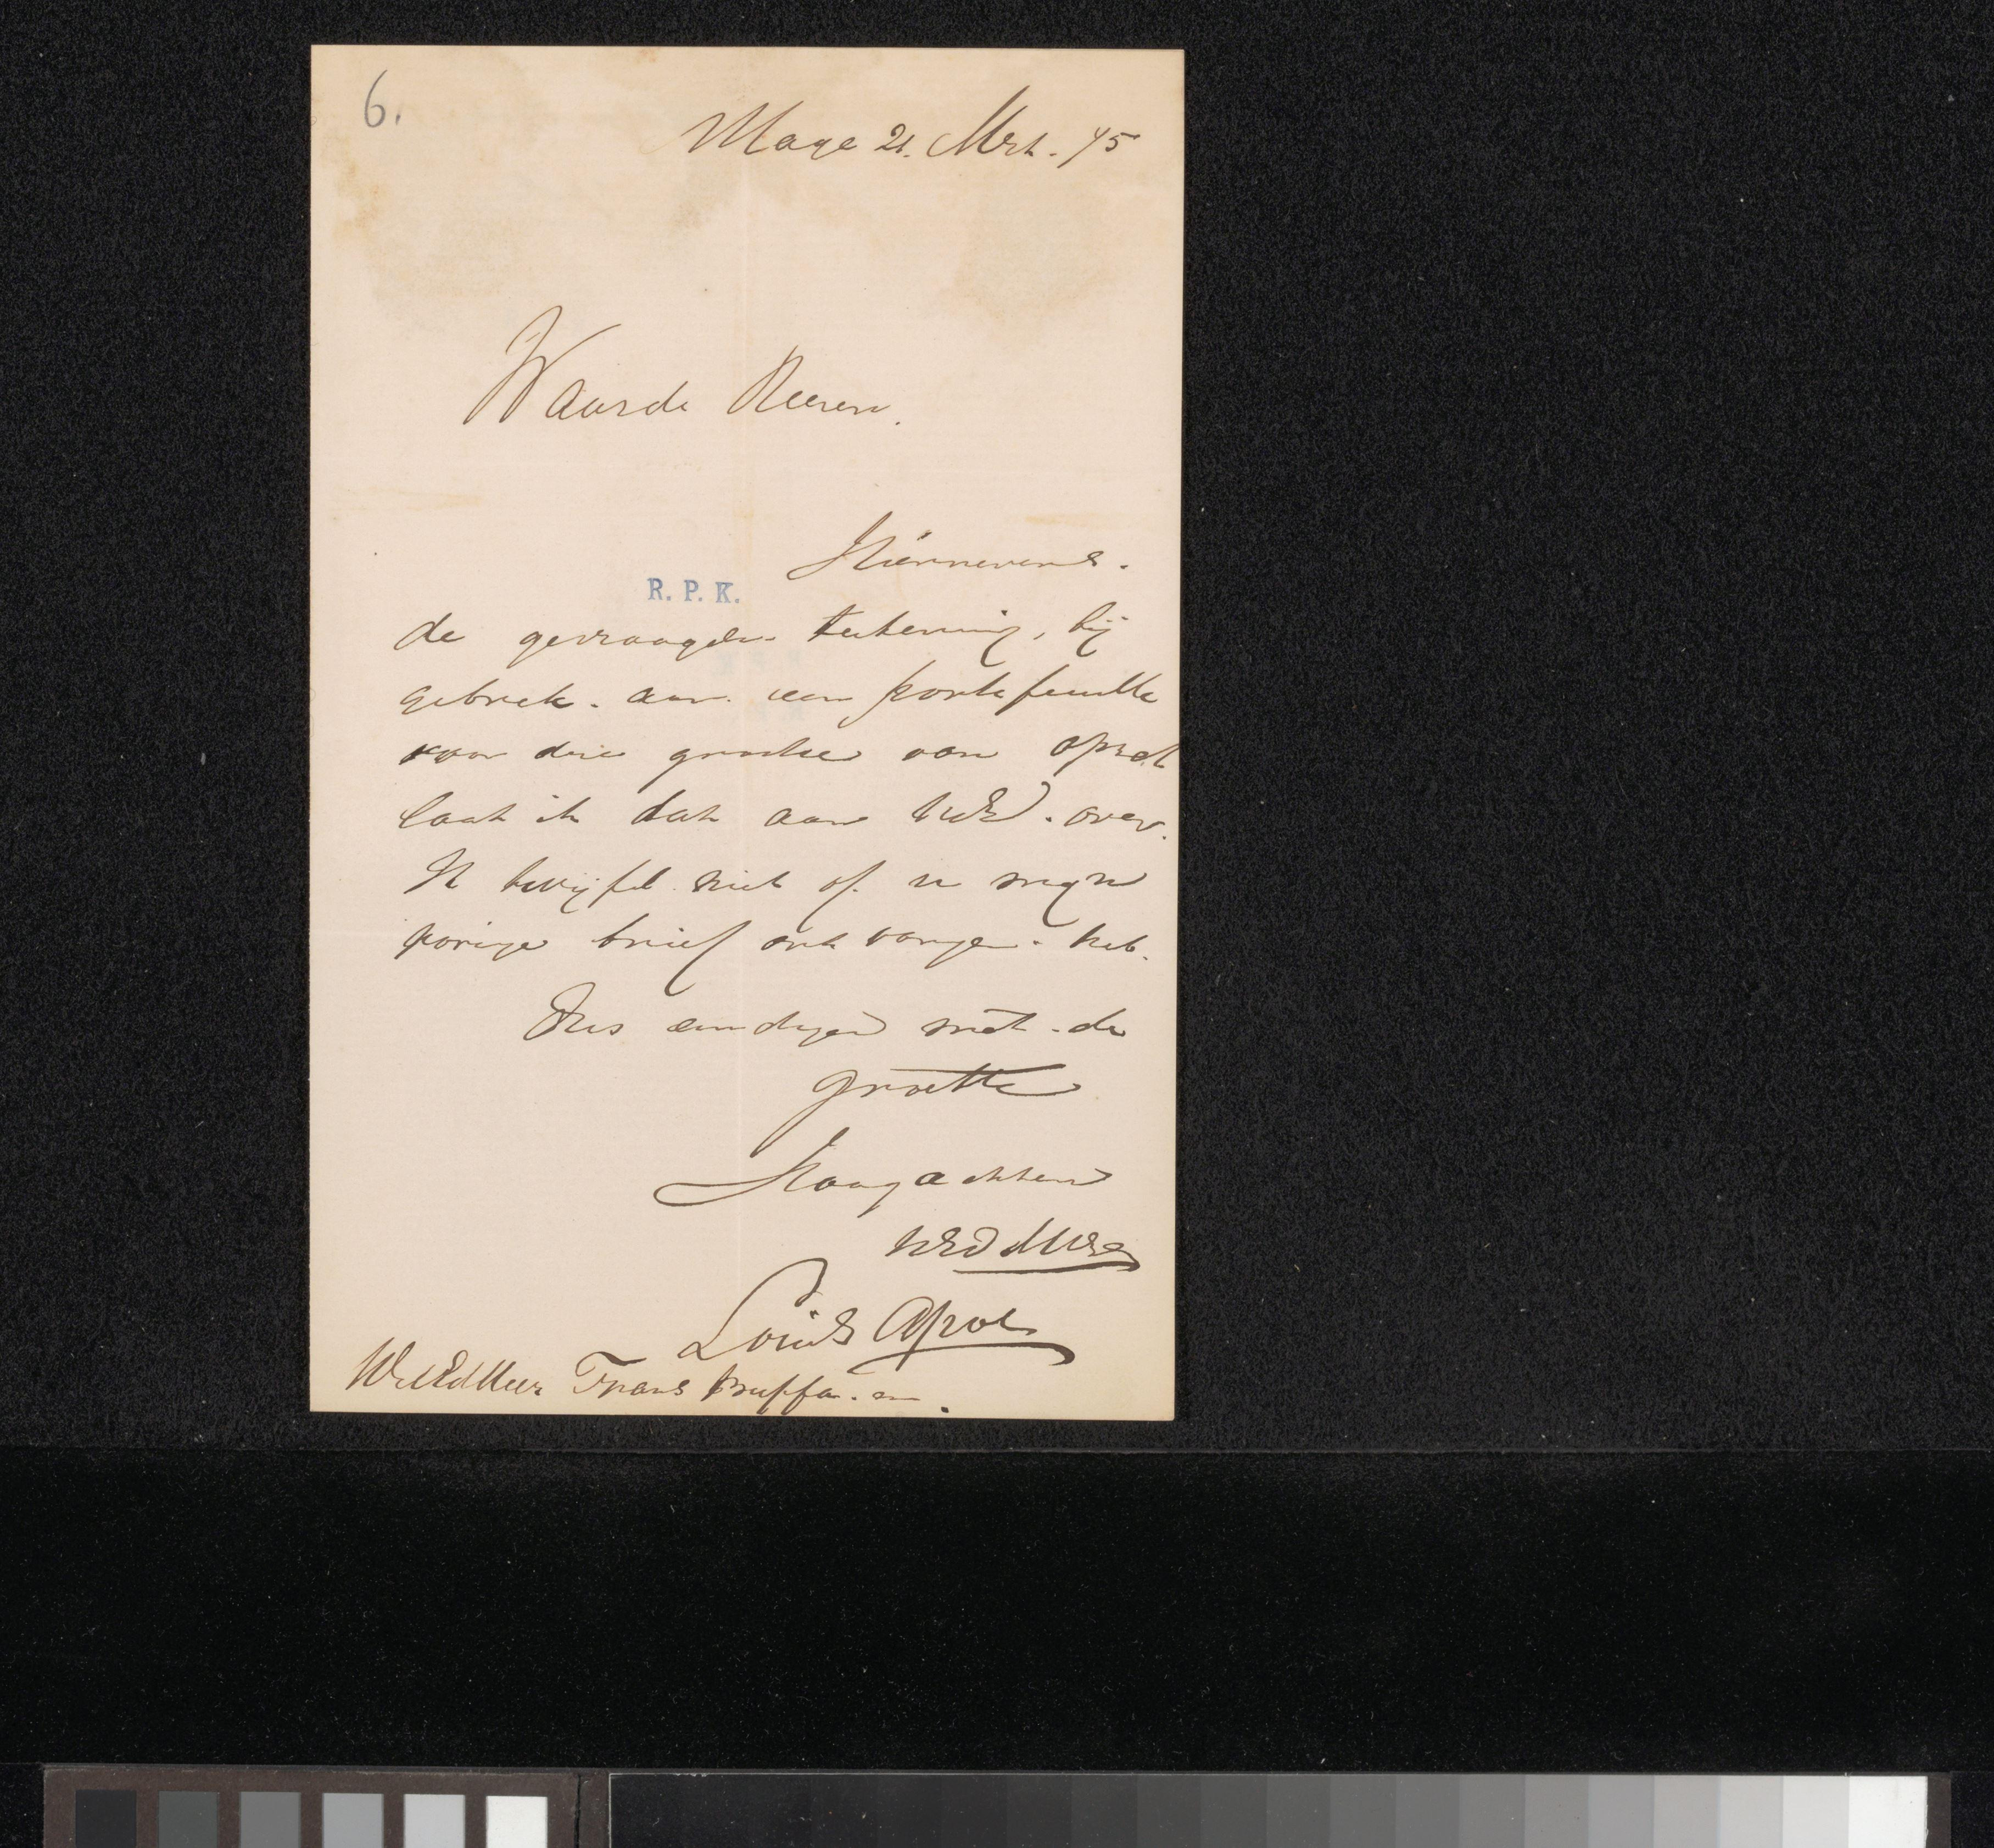 6.
Hage 21. Mrt. 95
Waarde Heeren.
Hiernevens.
R. P. K.
de gevraagde tekening, bij
gebrek. aan. een portefeuille
voor die grootte van opzet
laat ik dat aan UEd. over.
Ik twijfel niet of u mijn
vorige brief ontvangen. heb.
Dus eindigend met. de
groette
Hoogachtend
UEd
Louis Apol
WelEdHeer Frans Buffa. en